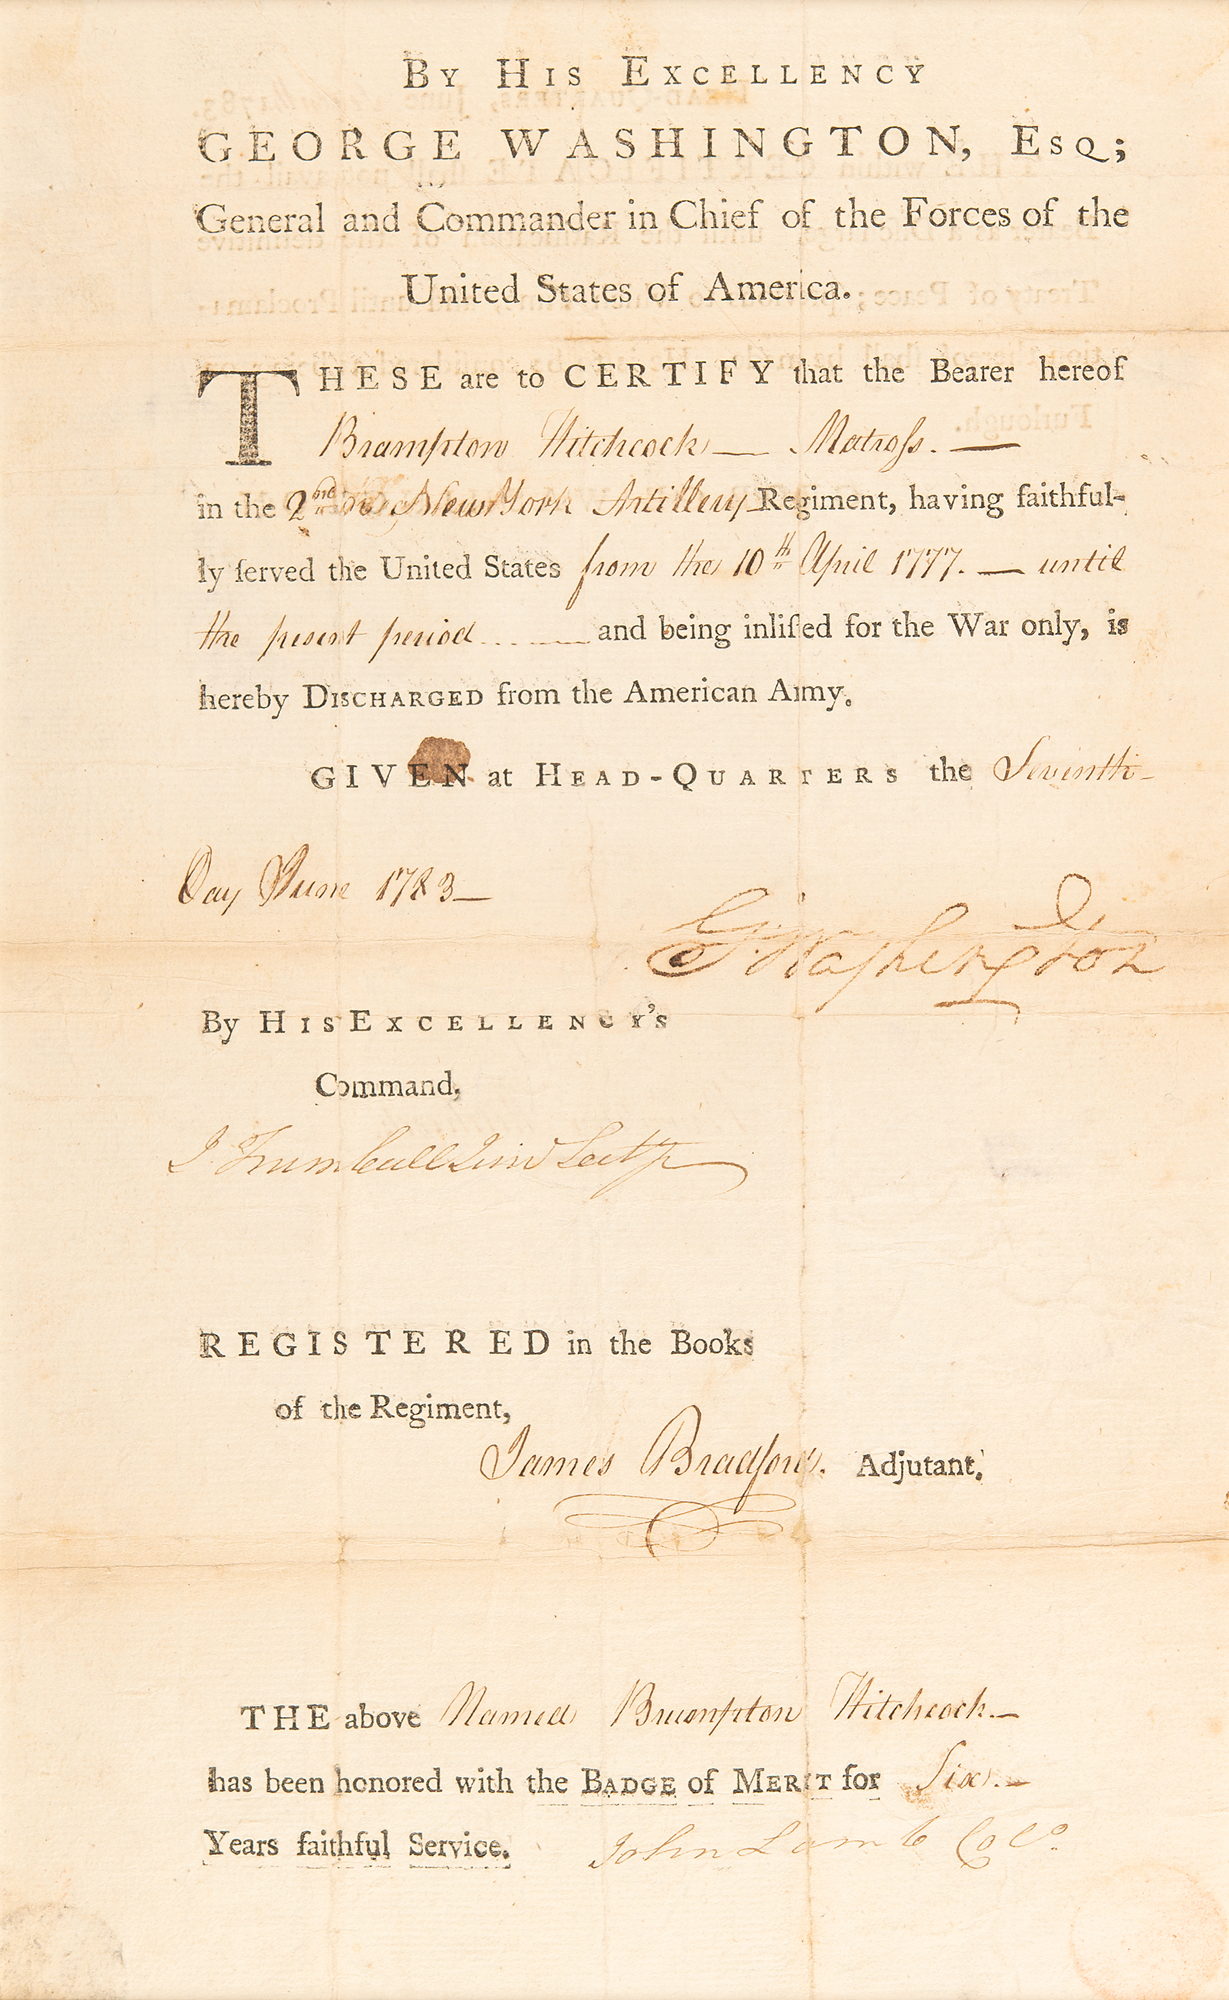 By His Excellency
GEORGE WASHINGTON, Esq;
General and Commander in Chief of the Forces of the
United States of America.
THESE are to CERTIFY that the Bearer hereof
Brampton Hitchcock — Matross. —
in the 2nd New York Artillery Regiment, having faithful-
ly ſerved the United States from the 10th April 1777. — until
the present period ... — and being inliſted for the War only, is
hereby Discharged from the American Army.
GIVEN at Head-Quarters the Seventh —
Day June 1783 —
G. Washington
By His Excellency's
Command,
J. Trumbull Jun Secty
REGISTERED in the Books
of the Regiment,
James Bradford. Adjutant.
THE above Named Brampton Hitchcock. —
has been honored with the Badge of Merit for Six. —
Years faithful Service. John Lamb Colo.